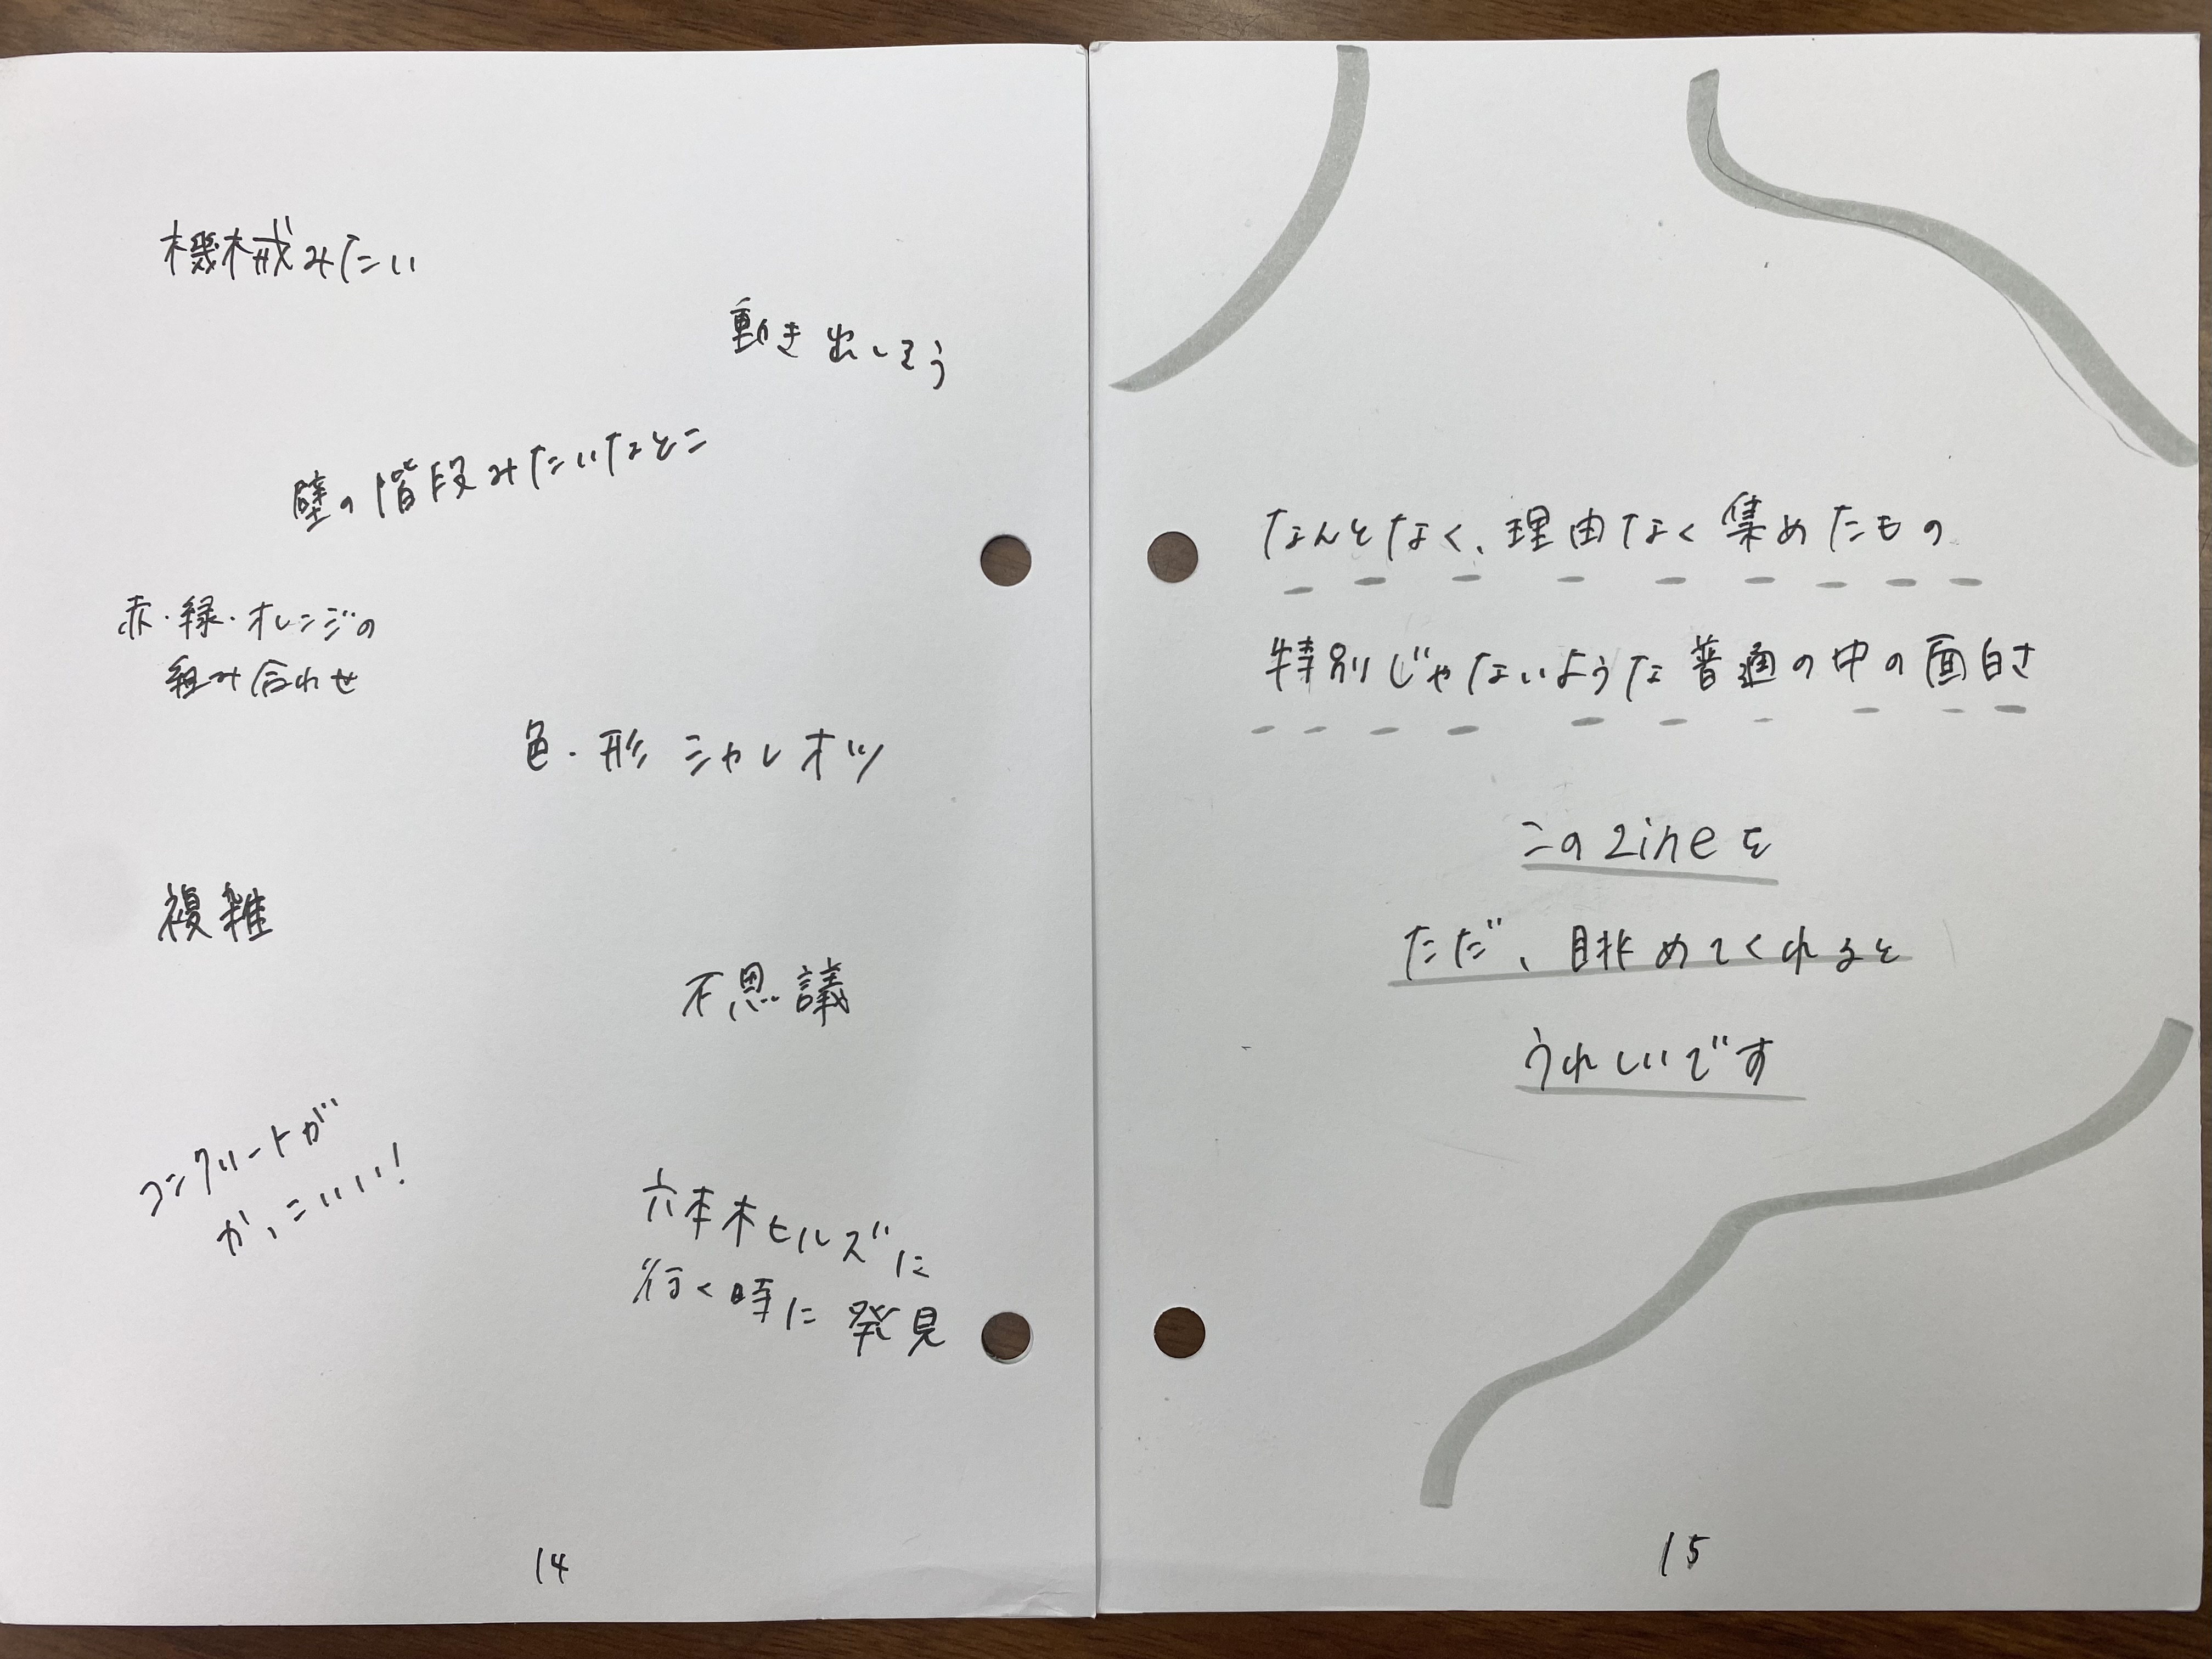 機械みたい
動き出しそう
壁の階段みたいなとこ
赤・緑・オレンジの
組み合わせ
色・形 シャレオツ
複雑
不思議
コンクリートが
かっこいい!
六本木ヒルズに
行く時に発見
14
なんとなく、理由なく集めたもの
特別じゃないような普通の中の面白さ
このZineを
ただ、眺めてくれると
うれしいです
15